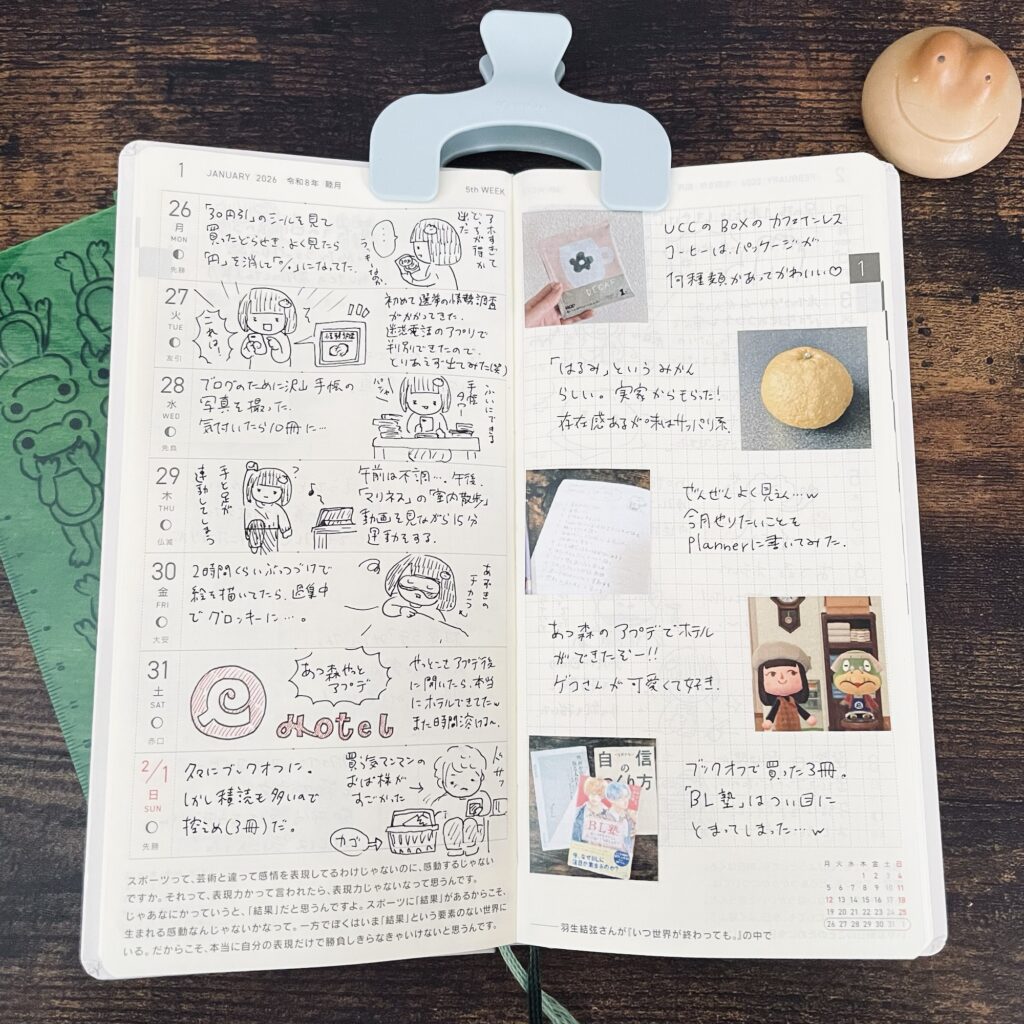 1 JANUARY 2026 令和8年 睦月
5th WEEK
26
月
MON
先勝
「30円引」のシールを見て
買ったどらやき、よく見たら
「円」を消して「%」になってた。
アホすぎて
どっちが得か
出た
27
火
TUE
友引
これは!
初めて選挙の情勢調査
がかかってきた。
迷惑電話のアプリで
判別できたので、
とりあえず出てみた(笑)
28
水
WED
先負
ブログのために沢山手帳の
写真を撮った。
気付いたら10冊に…
パシャ
ふいにできる
手帳
タワー
29
木
THU
仏滅
手と足が
連動してしまう
?
午前は不調…、午後、
「マリネス」の「室内散歩」
動画を見ながら15分
運動をする。
30
金
FRI
大安
2時間くらいぶっつづけで
絵を描いてたら、過集中
でグロッキーに…。
あずきの
チカラ
31
土
SAT
赤口
あつ森やっと
アプデ
Hotel
やっとこさアプデ後
に開いたら、本当
にホテルできてたw
また時間溶ける〜
2/1
日
SUN
先勝
久々にブックオフに。
しかし積読も多いので
控えめ(3冊)だ。
買う気マンマンの
おば様が
すごかった
カゴ
ドサッ
スポーツって、芸術と違って感情を表現してるわけじゃないのに、感動するじゃない
ですか。それって、表現力かって言われたら、表現力じゃないなって思うんです。
じゃあなにかっていうと、「結果」だと思うんですよ。スポーツに「結果」があるからこそ、
生まれる感動なんじゃないかなって。一方でぼくはいま「結果」という要素のない世界に
いる。だからこそ、本当に自分の表現だけで勝負しきらなきゃいけないと思うんです。
UCCのBOXのカフェインレス
コーヒーは、パッケージが
何種類かあってかわいい♡
1
DECAF
「はるみ」という みかん
らしい。実家からもらった!
存在感あるが味はサッパリ系。
ぜんぜんよく見えん…w
今月やりたいことを
Plannerに書いてみた。
あつ森のアプデでホテル
ができたぞー!!
ゲコさんが可愛くて好き。
自信
の
つくり方
BL塾
今、なぜBLに
注目が集まるのか?
ブックオフで買った3冊。
「BL塾」はつい目に
とまってしまった…w
月 火 水 木 金 土 日
1 2 3 4
5 6 7 8 9 10 11
12 13 14 15 16 17 18
19 20 21 22 23 24 25
26 27 28 29 30 31 1
羽生結弦さんが『いつ世界が終わっても。』の中で